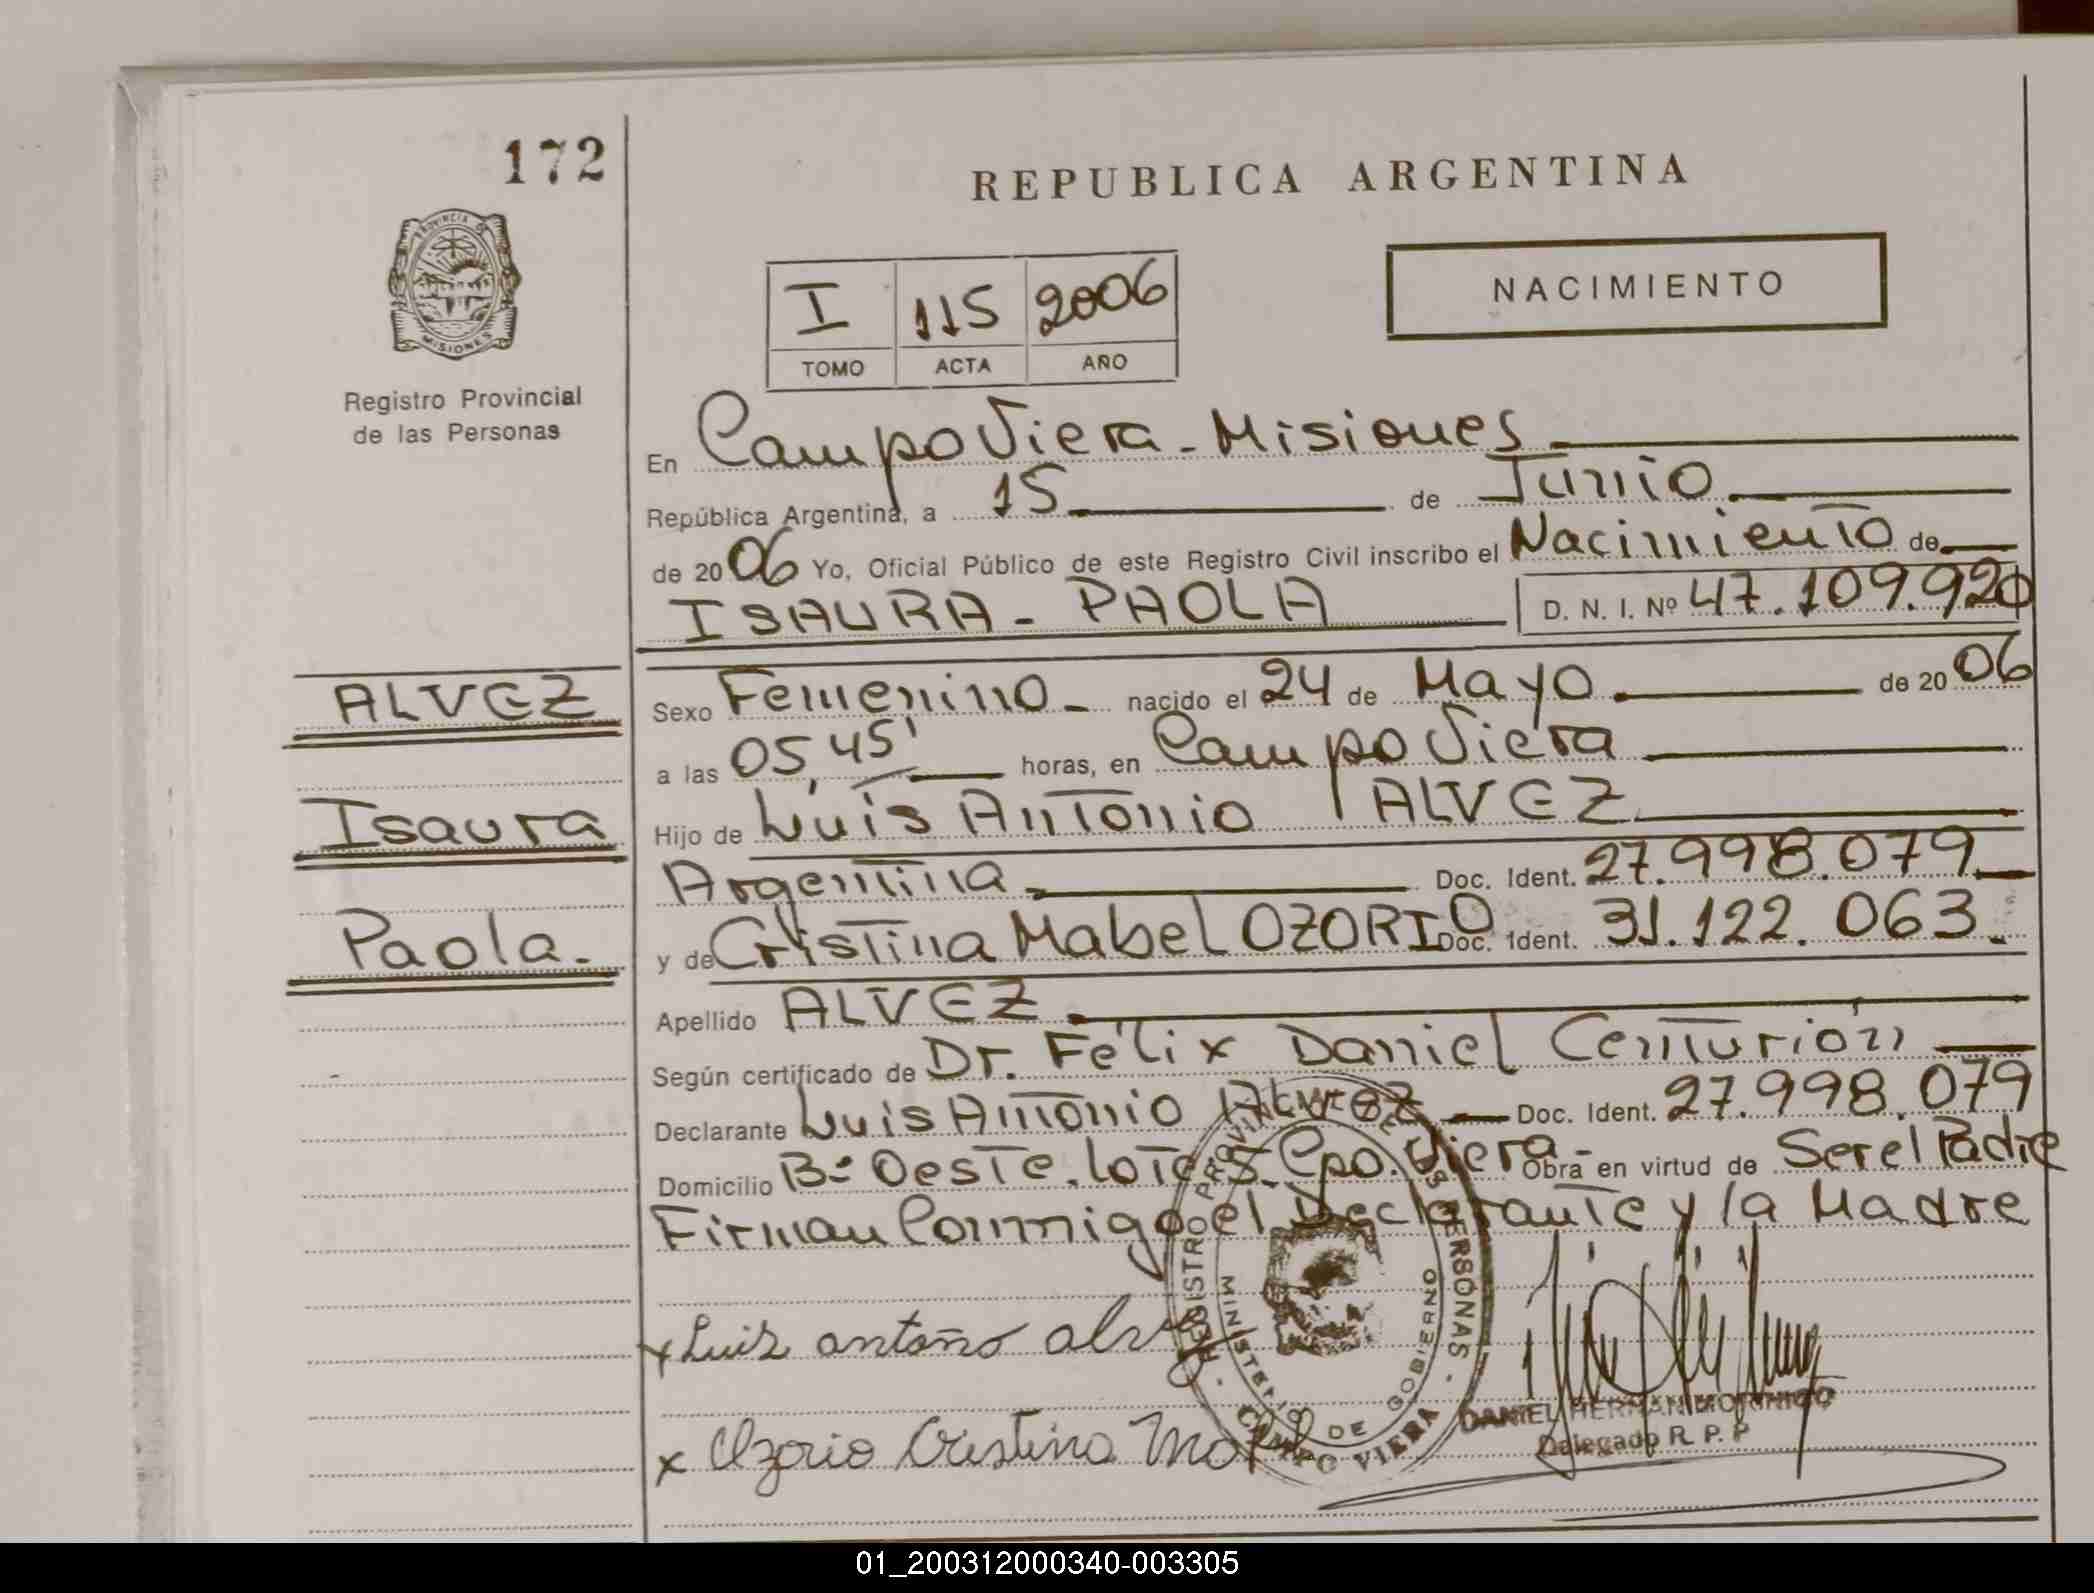 172
REPUBLICA ARGENTINA
PROVINCIA DE
MISIONES
Registro Provincial
de las Personas
I 115 2006
TOMO ACTA AÑO
NACIMIENTO
En Campo Viera - Misiones
República Argentina, a 15 de Junio
de 2006 Yo, Oficial Público de este Registro Civil inscribo el Nacimiento de
ISAURA - PAOLA D. N. I. Nº 47.109.920
ALVEZ
Isaura
Paola.
Sexo Femenino - nacido el 24 de Mayo de 2006
a las 05,45' horas, en Campo Viera
Hijo de Luis Antonio ALVEZ
Argentina Doc. Ident. 27.998.079
y de Cristina Mabel OZORIO Doc. Ident. 31.122.063.
Apellido ALVEZ
Según certificado de Dr. Félix Daniel Centurión
Declarante Luis Antonio ALVEZ Doc. Ident. 27.998.079
Domicilio Bº Oeste. Lote 5. Cpo. Viera - Obra en virtud de Ser el Padre
Firman Conmigo el Declarante y la Madre
REGISTRO PROVINCIAL DE LAS PERSONAS
MINISTERIO DE GOBIERNO
CAMPO VIERA
x Luis antoño alvez
x Ozorio Cristina
DANIEL HERNAN
Delegado R. P. P
01_200312000340-003305